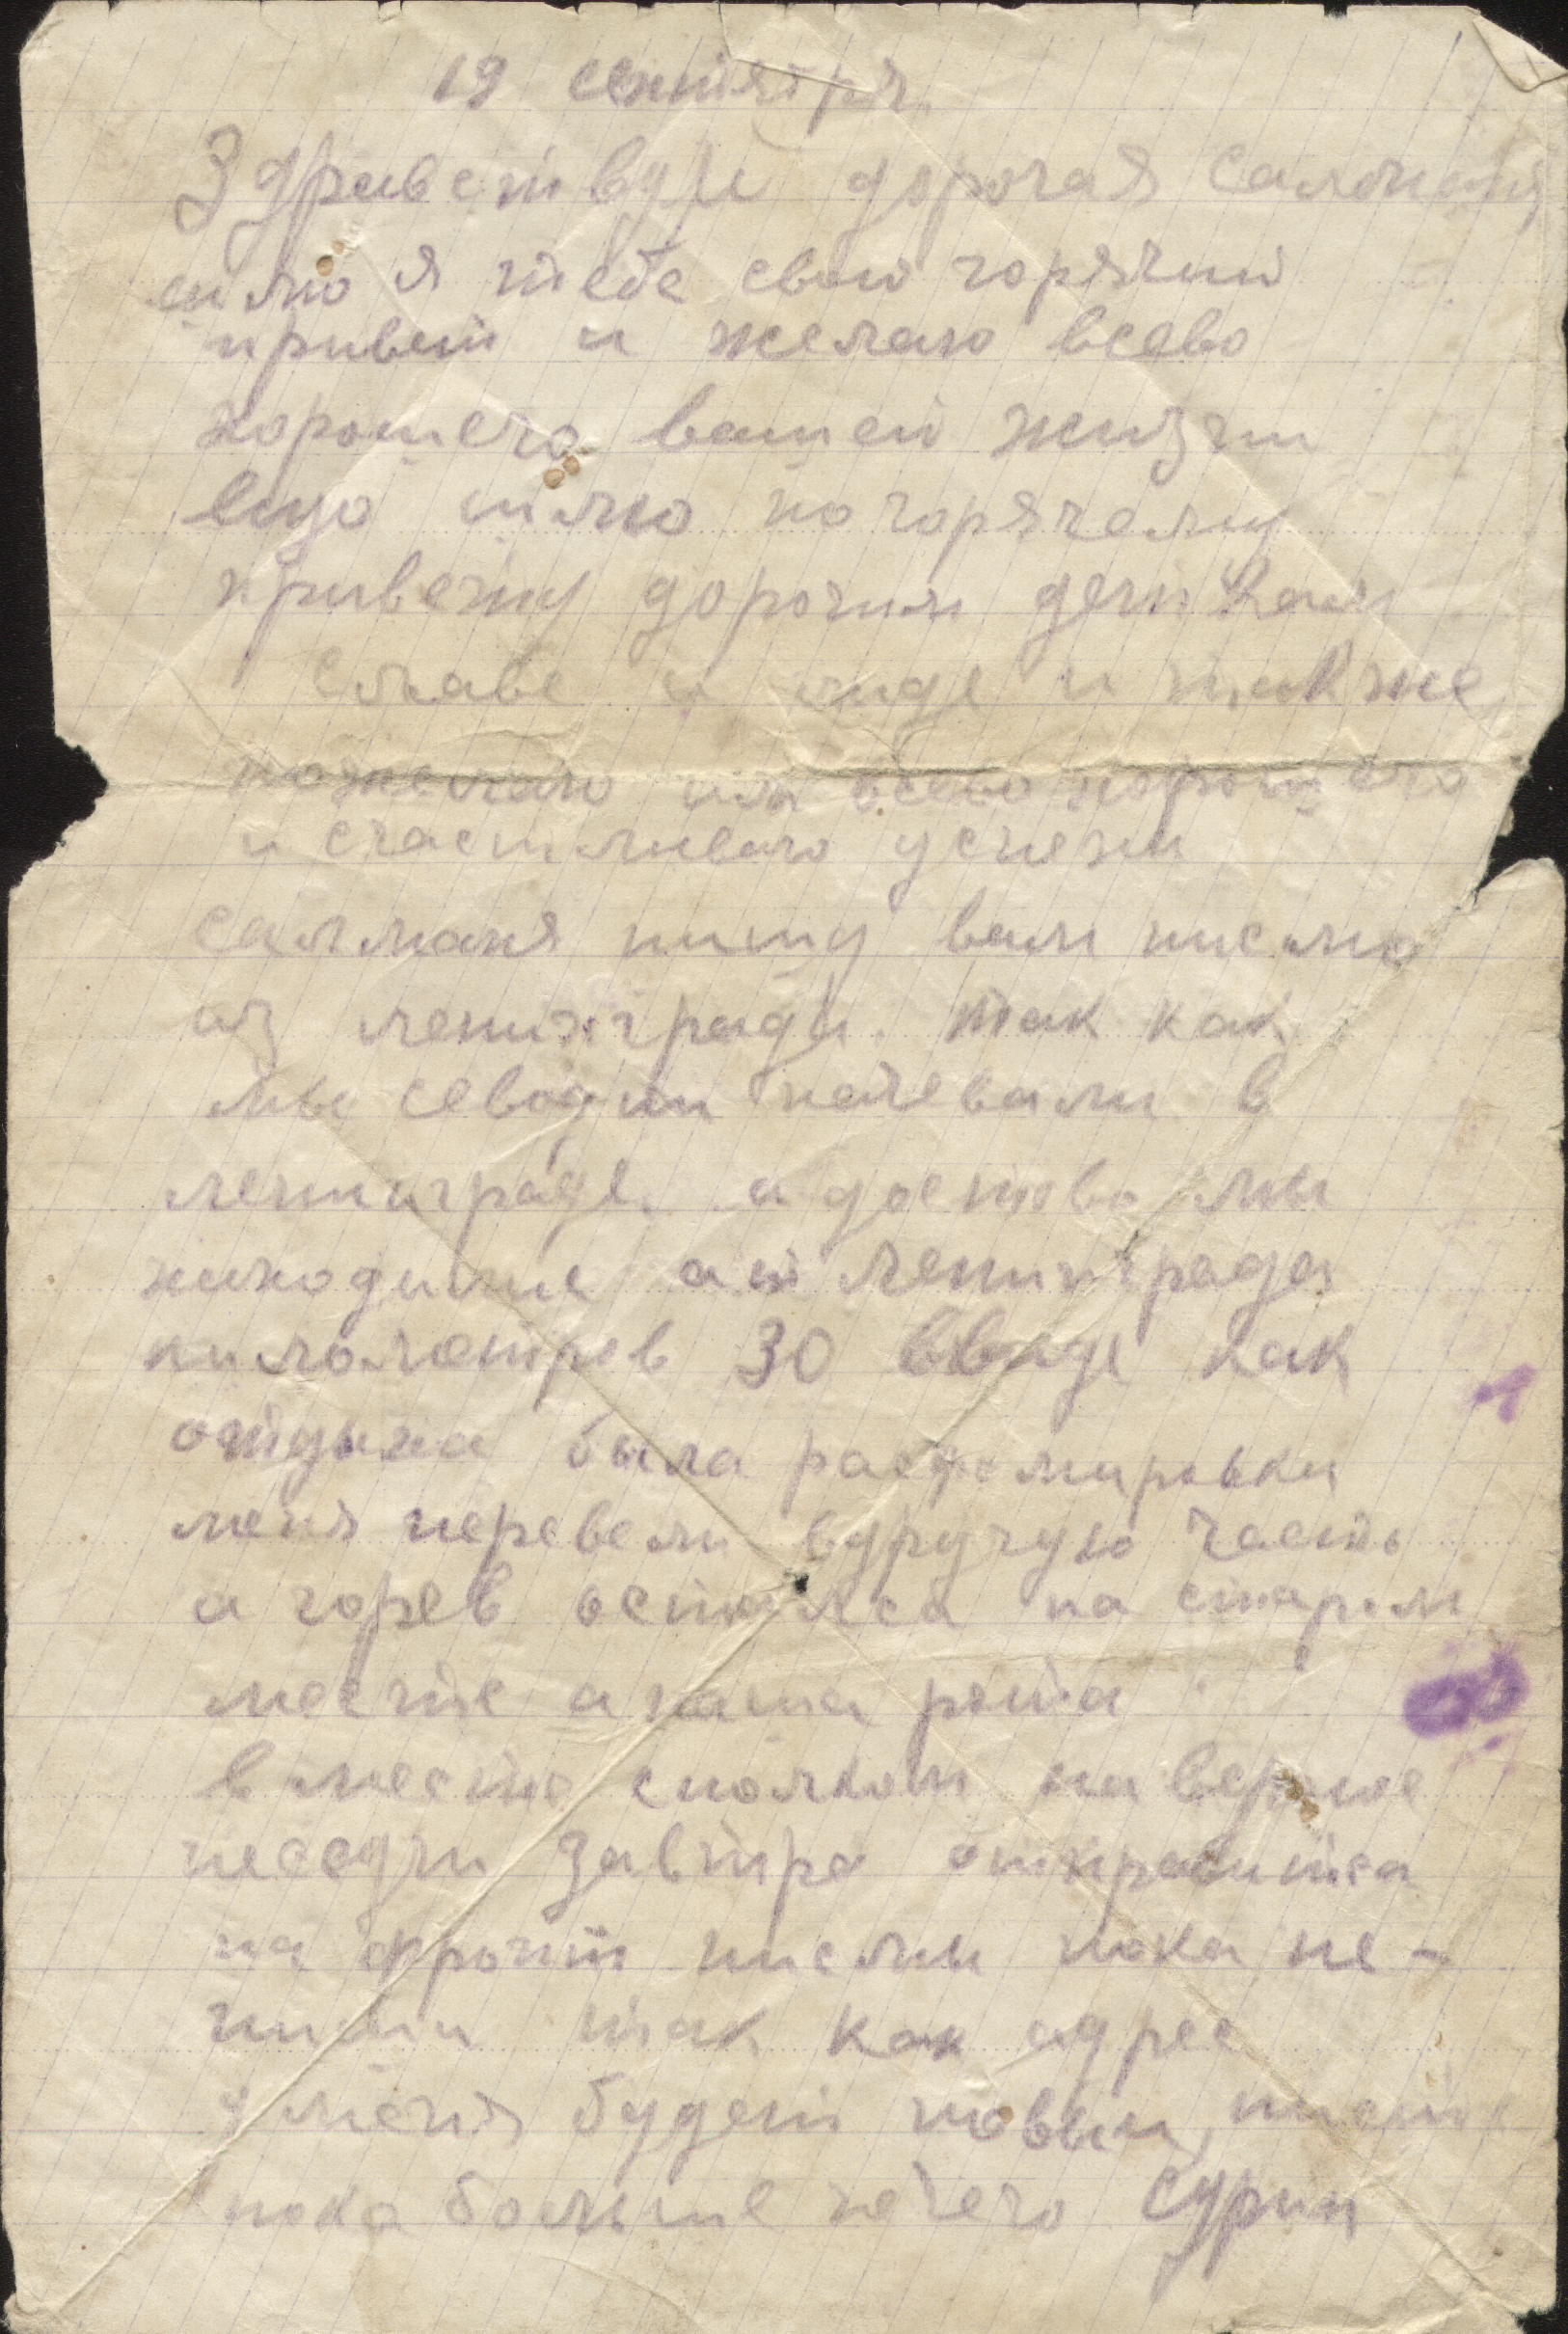 19 сентября.
Здравствуй дорогая Саломаня
шлю я тебе свой горячий
привет и желаю всево
хорошего вашей жизни
ещо шлю по горячему
привету дорогим деткам
Славе и лиде и также
пожелаю им всево хорошего
и счастливого успехи
саломаня пишу вам писмо
из ленинграда. так как
мы севодни начевали в
ленинграде. а до етово мы
находиլис ат Ленинграда
километров 30 ввиде как
отдыха была расфомировки
меня перевели вдругую часть
а горев остался на старом
месте а наша рота
вместе сполком наверное
несодни завтра отправитса
на фронт писмы пока не-
пиши так как адрес
у меня будет новый, писать
пока больше нечего Сурин